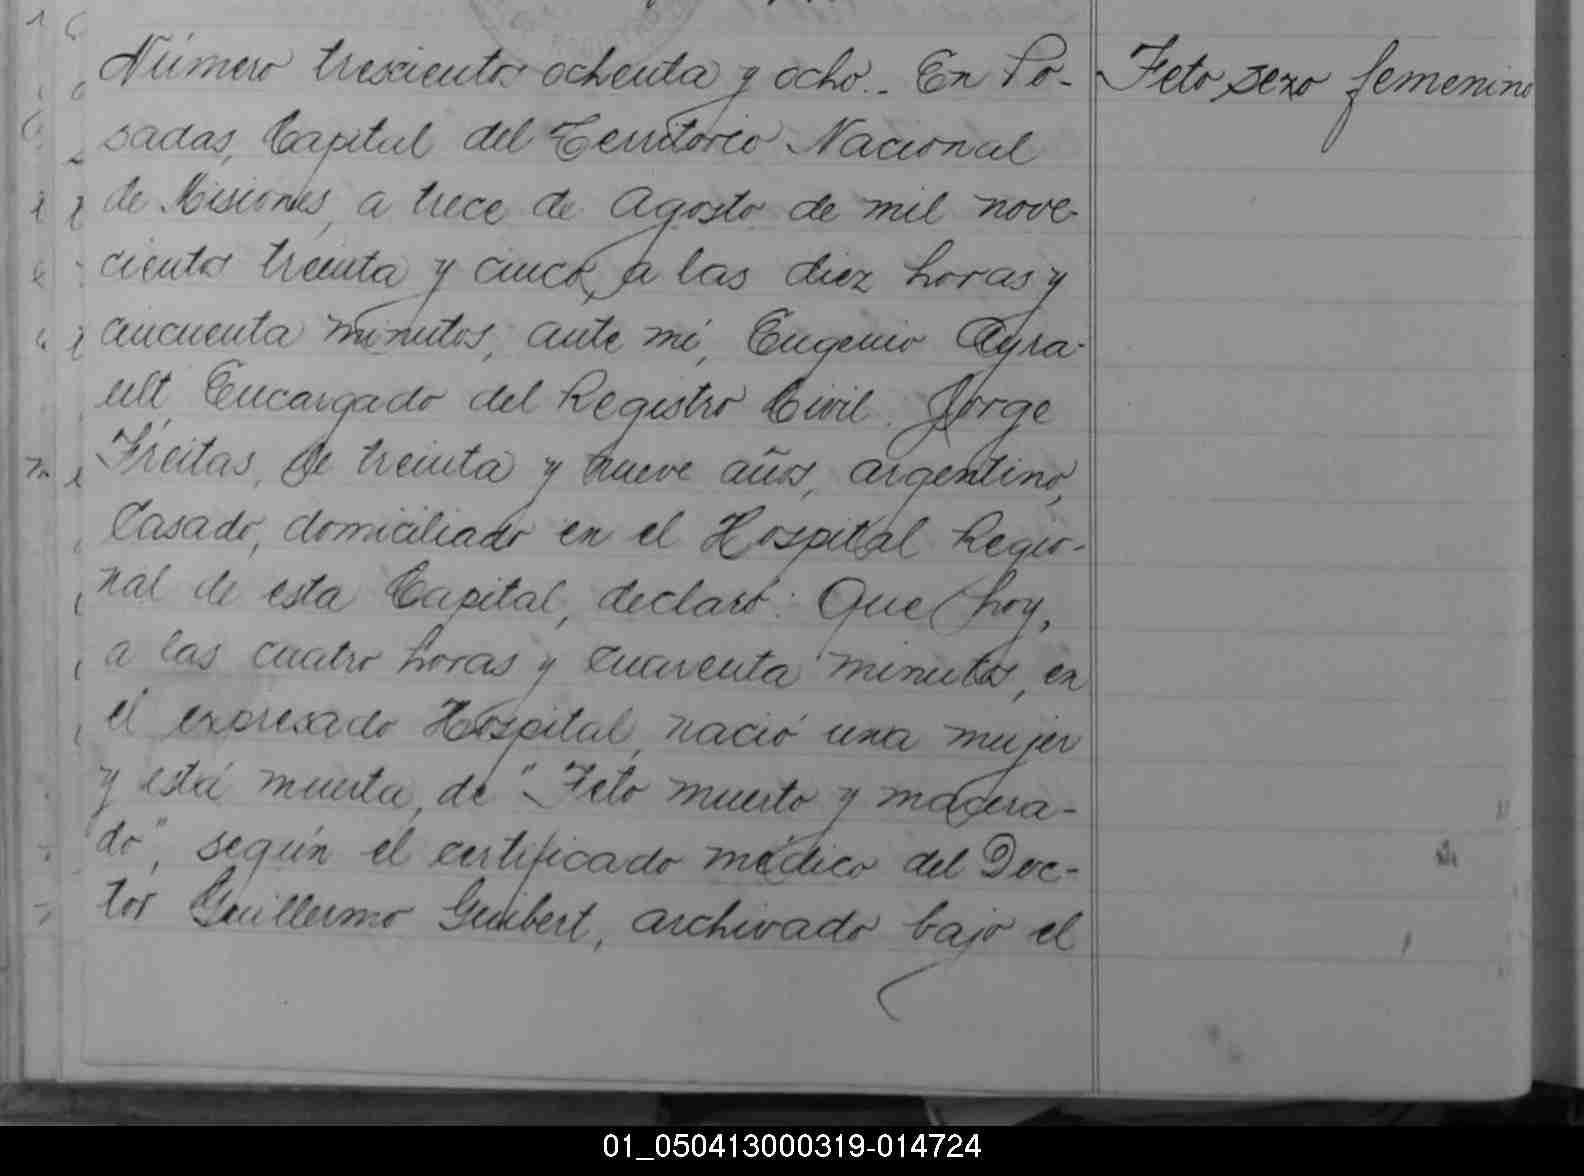 Número trescientos ochenta y ocho.. En Po-
sadas, Capital del Territorio Nacional
de Misiones, a trece de Agosto de mil nove-
cientos treinta y cinco, a las diez horas y
cincuenta minutos, ante mí, Eugenio Ayra-
ult, Encargado del Registro Civil. Jorge
Freitas, de treinta y nueve años, argentino,
Casado, domiciliado en el Hospital Regio-
nal de esta Capital, declaró: Que hoy,
a las cuatro horas y cuarenta minutos, en
el expresado Hospital, nació una mujer
y está muerta, de "Feto muerto y macera-
do", según el certificado médico del Doc-
tor Guillermo Guibert, archivado bajo el
Feto sexo femenino
01_050413000319-014724